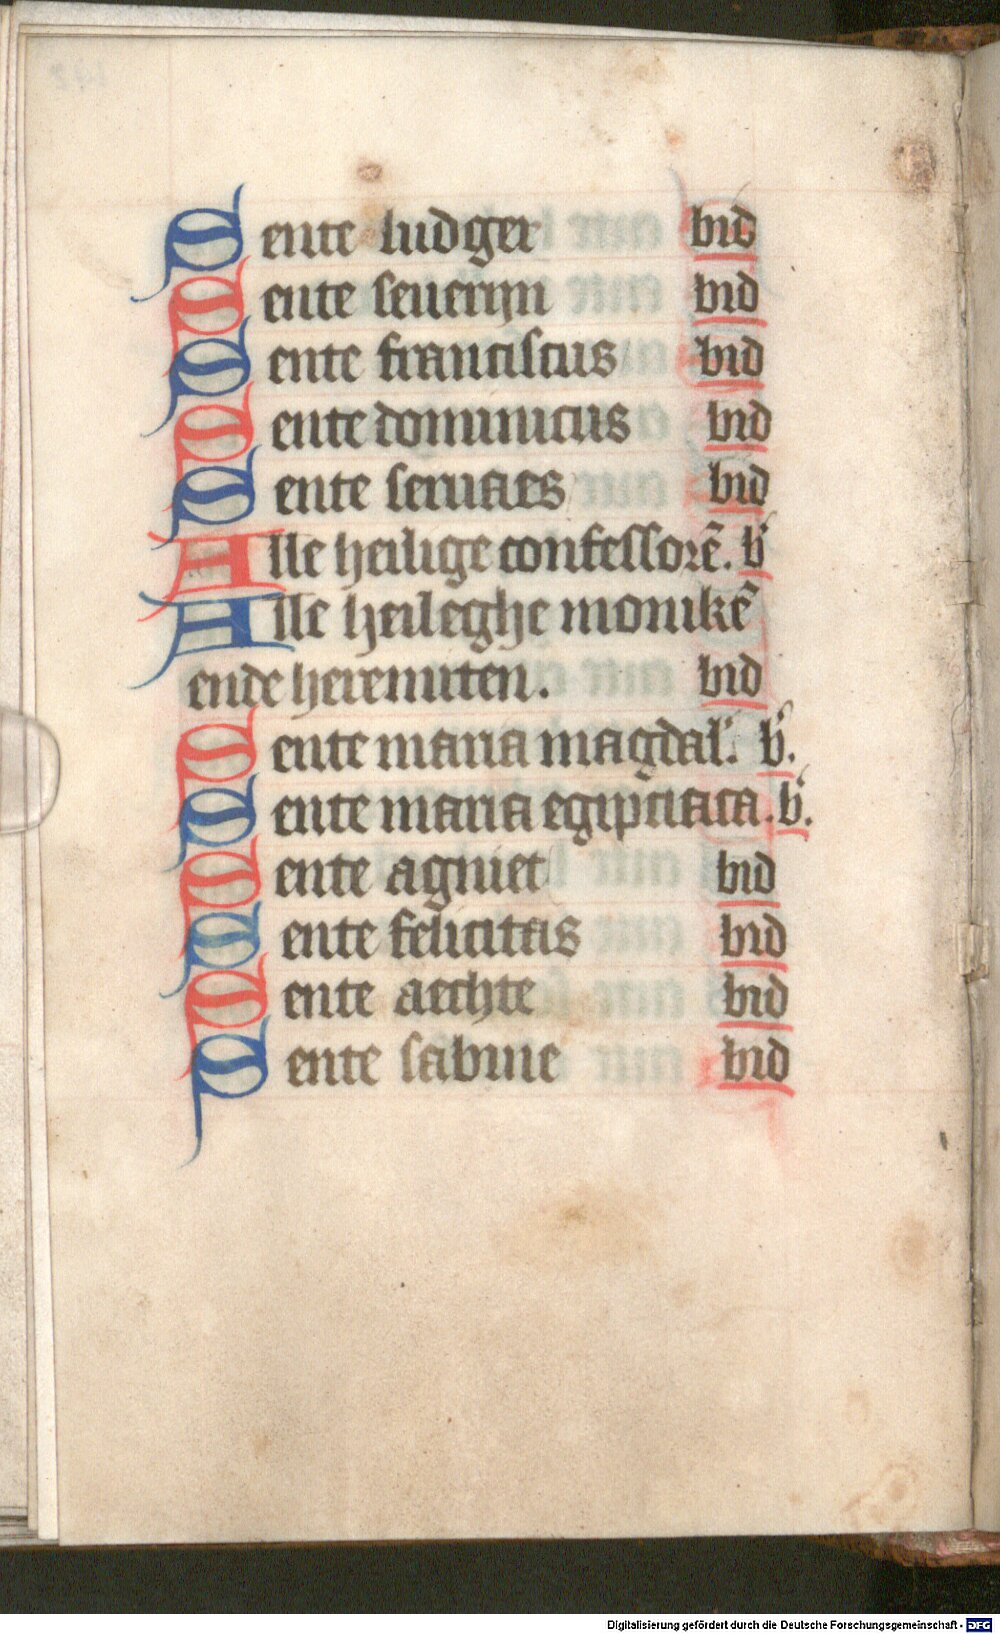 Sente ludger bid
Sente seueriin bid
Sente franciscus bid
Sente dominicus bid
Sente seruaes bid
Alle heilige confessorē. b
Alle heileghe monikē
ende heremiten. bid
Sente maria magdal'. b.
Sente maria egipciaca. b.
Sente agniet bid
Sente felicitas bid
Sente aechte bid
Sente sabine bid
Digitalisierung gefördert durch die Deutsche Forschungsgemeinschaft - DFG